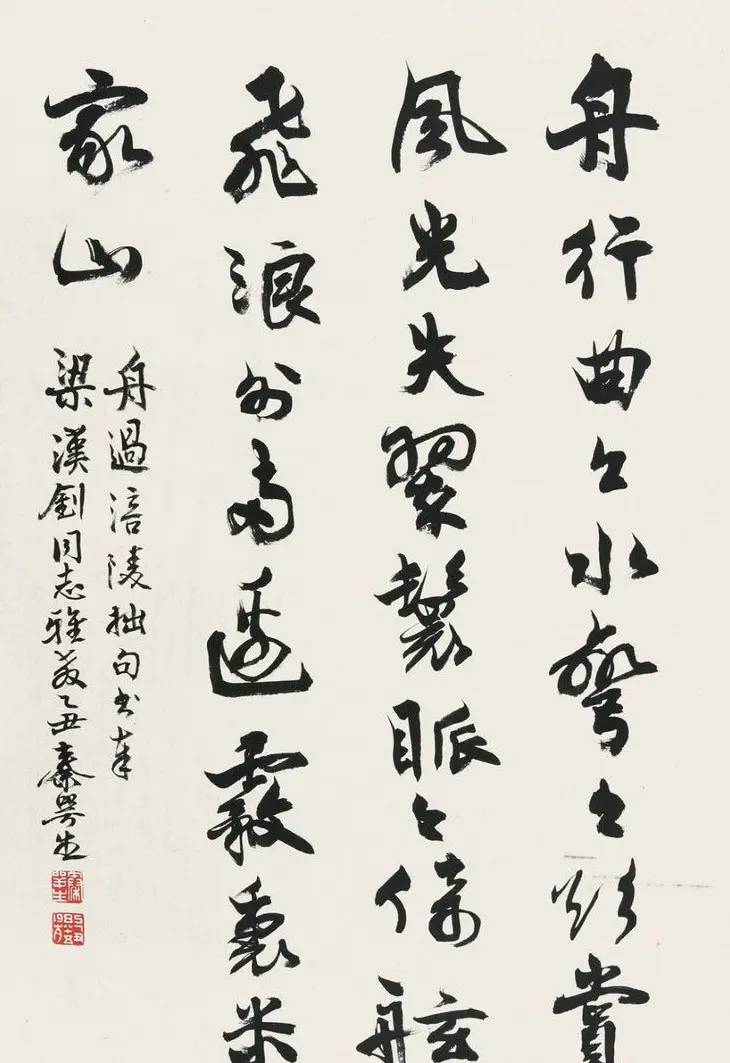 舟行曲々水彎々欣賞
風光失翠鬟脈々倚舷
飛浪外雨邊霧裏米
家山
舟過涪陵拙句書奉
梁漢釗同志雅教乙丑秦咢生